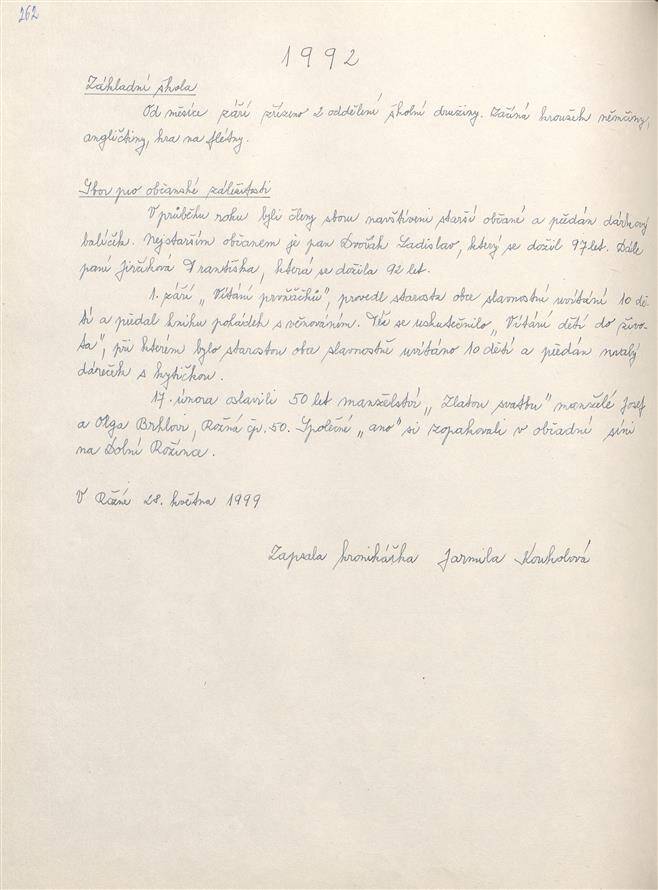 262
1992
Základní škola
Od měsíce září zřízeno 2 oddělení školní družiny. Začíná kroužek němčiny,
angličtiny, hra na flétny.
Sbor pro občanské záležitosti
V průběhu roku byli členy sboru navštíveni starší občané a předán dárkový
balíček. Nejstarším občanem je pan Dvořák Ladislav, který se dožil 97 let. Dále
paní Jiříková Františka, která se dožila 92 let.
1. září „Vítání prvňáčků", provedl starosta obce slavnostní uvítání 10 dě-
tí a předal knihu pohádek s věnováním. Též se uskutečnilo „Vítání dětí do živo-
ta", při kterém bylo starostou obce slavnostně uvítáno 10 dětí a předán malý
dáreček s kytičkou.
17. února oslavili 50 let manželství „Zlatou svatbu" manželé Josef
a Olga Brklovi, Rožná čp. 50. Společné „ano" si zopakovali v obřadní síni
na Dolní Rožínce.
V Rožné 28. května 1999
Zapsala kronikářka Jarmila Koukolová